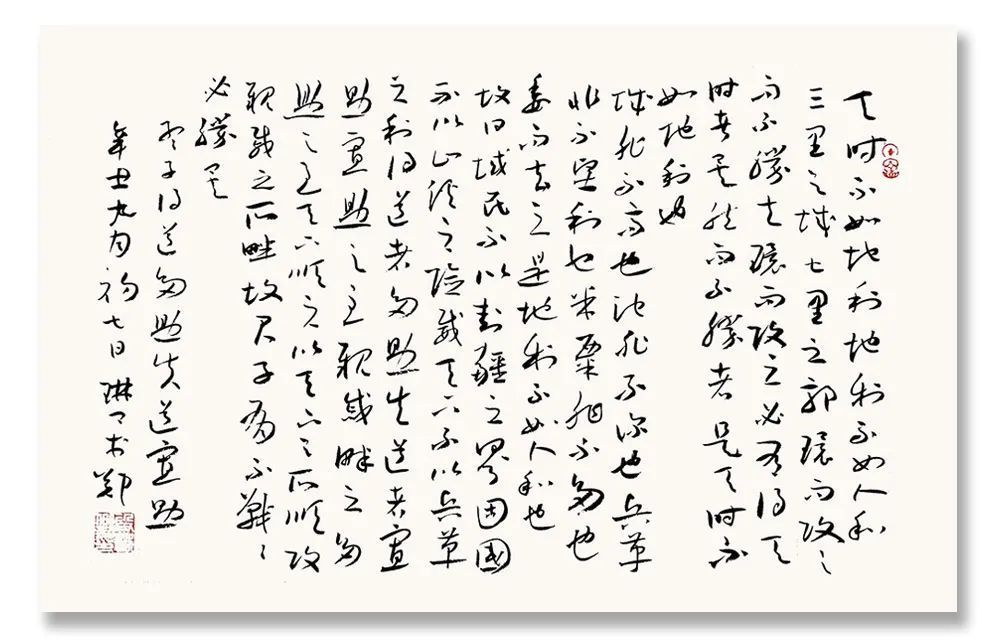 天时不如地利地利不如人和
三里之城七里之郭環而攻之
而不勝夫環而攻之必有得天
时者矣然而不勝者是天时不
如地利也
城非不高也池非不深也兵革
非不坚利也米粟非不多也
委而去之是地利不如人和也
故曰域民不以封疆之界固國
不以山溪之险威天下不以兵革
之利得道者多助失道者寡
助寡助之至親戚畔之多
助之至天下順之以天下之所順攻
親戚之所畔故君子有不戰々
必勝矣
孟子得道多助失道寡助
辛丑九月初七日琳於鄭